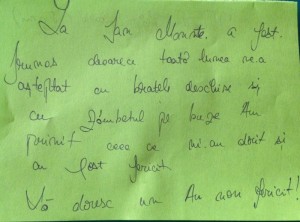 La Jara Monstr. a fost
frumos deoarece toată lumea ne.a
așteptat cu brațele deschise și
cu Zâmbetul pe buze Am
primit ceea ce mi.am dorit și
am fost fericit
Vă doresc un An nou fericit!